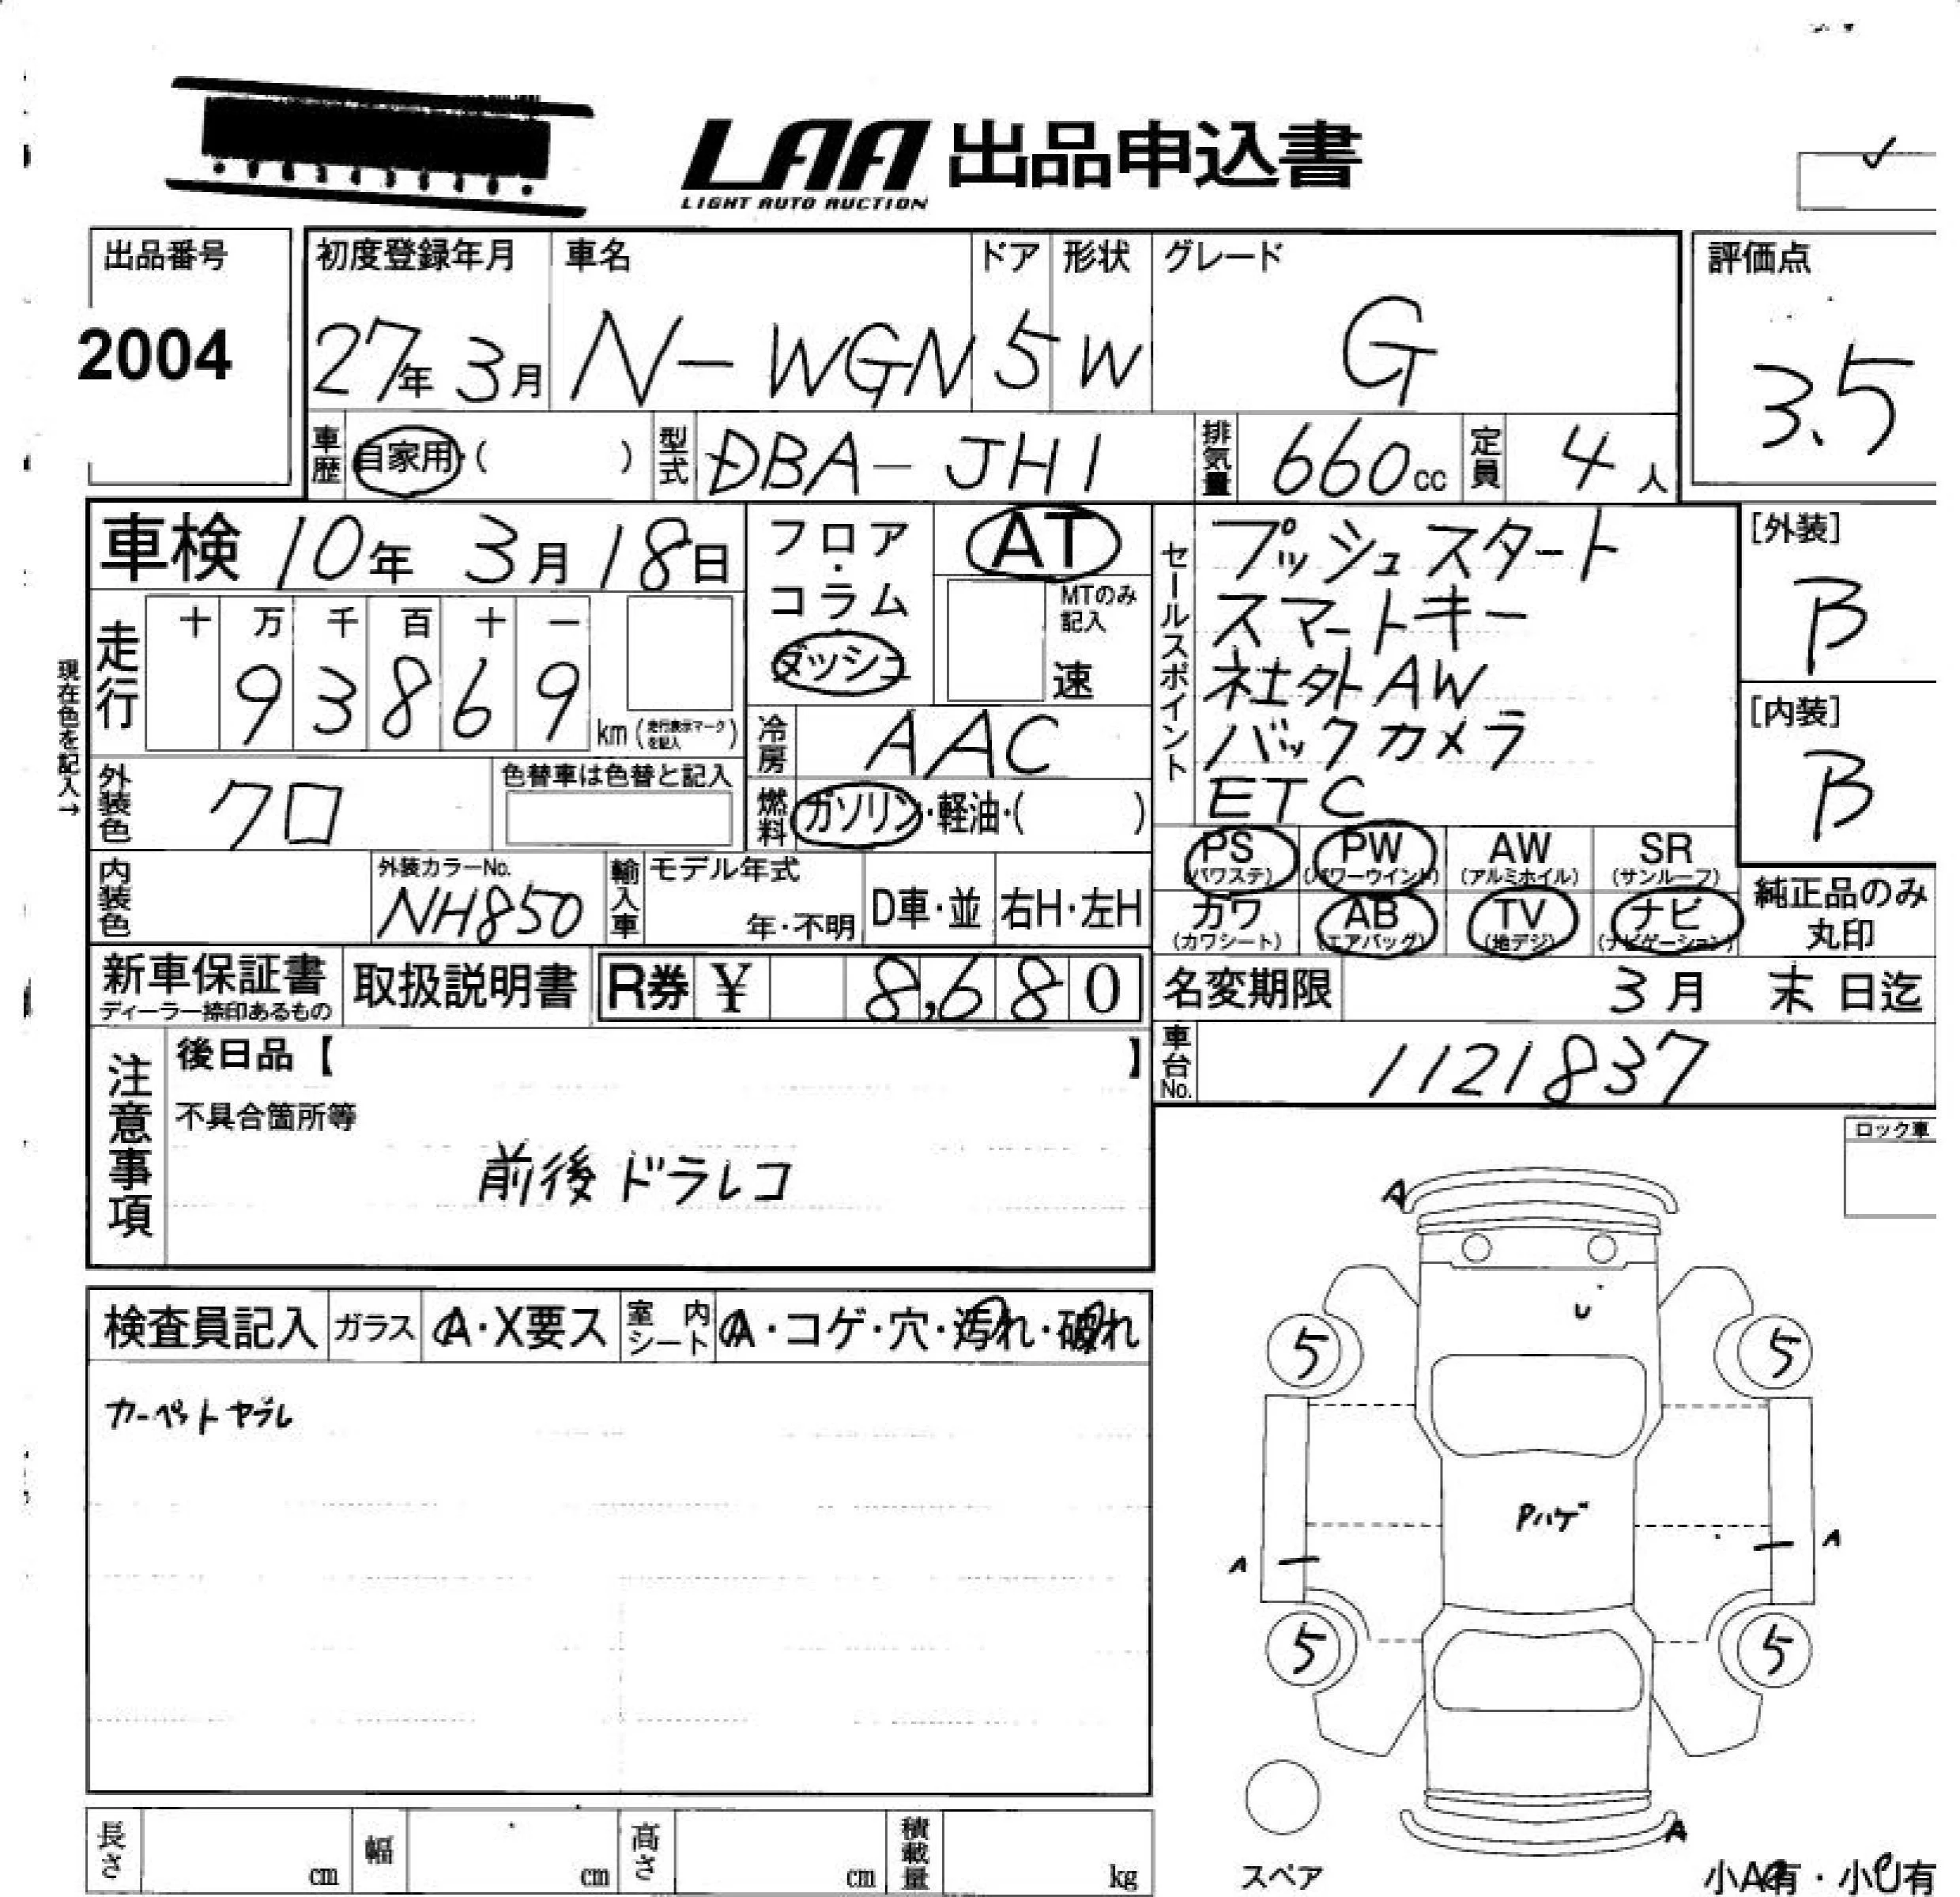 LAA 出品申込書
LIGHT AUTO AUCTION
出品番号
2004
初度登録年月 車名 ドア 形状 グレード
27年 3月 N-WGN 5 W G
評価点
3.5
車歴 自家用・( ) 型式 DBA-JH1 排気量 660cc 定員 4人
車検 10年 3月 18日
フロア・コラム
ダッシュ
AT
MTのみ記入
速
走行
十 万 千 百 十 一
9 3 8 6 9
km (走行表示マークを記入)
現在色を記入→
冷房 AAC
燃料 ガソリン・軽油・( )
外装色 クロ
色替車は色替と記入
内装色
外装カラーNo.
NH850
輸入車
モデル年式
年・不明
D車・並
右H・左H
セールスポイント
プッシュスタート
スマートキー
社外AW
バックカメラ
ETC
[外装]
B
[内装]
B
PS (パワステ) PW (パワーウインド) AW (アルミホイル) SR (サンルーフ)
カワ (カワシート) AB (エアバッグ) TV (地デジ) ナビ (ナビゲーション)
純正品のみ
丸印
新車保証書
ディーラー捺印あるもの
取扱説明書
R券 ¥ 8,680
名変期限 3月 末日迄
車台No. 1121837
注意事項
後日品【 】
不具合箇所等
前後ドラレコ
ロック車
検査員記入 ガラス A・X要ス 室内シート A・コゲ・穴・汚れ・破れ
カーペットヤブレ
A
U
5 5
Pハゲ
A A
5 5
A
スペア
長さ cm 幅 cm 高さ cm 積載量 kg
小A有・小U有